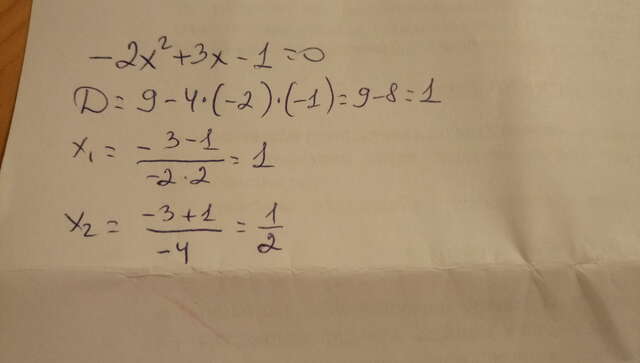 -2x²+3x-1=0
D=9-4·(-2)·(-1)=9-8=1
x₁=(-3-1)/(-2·2)=1
x₂=(-3+1)/(-4)=1/2